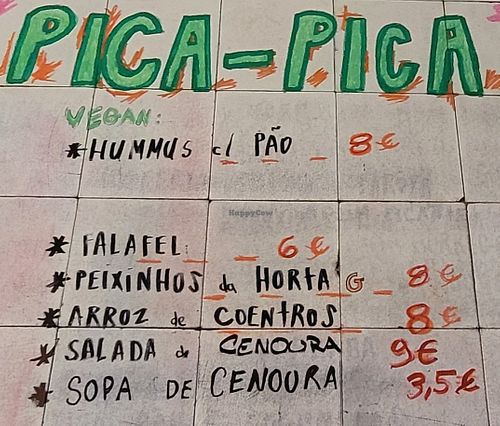 PICA-PICA
VEGAN:
*HUMMUS c/ PÃO _ 8€
HappyCow
* FALAFEL _ _ 6€
*PEIXINHOS da HORTA G _ 8€
* ARROZ de COENTROS 8€
* SALADA de CENOURA 9€
* SOPA DE CENOURA 3,5€